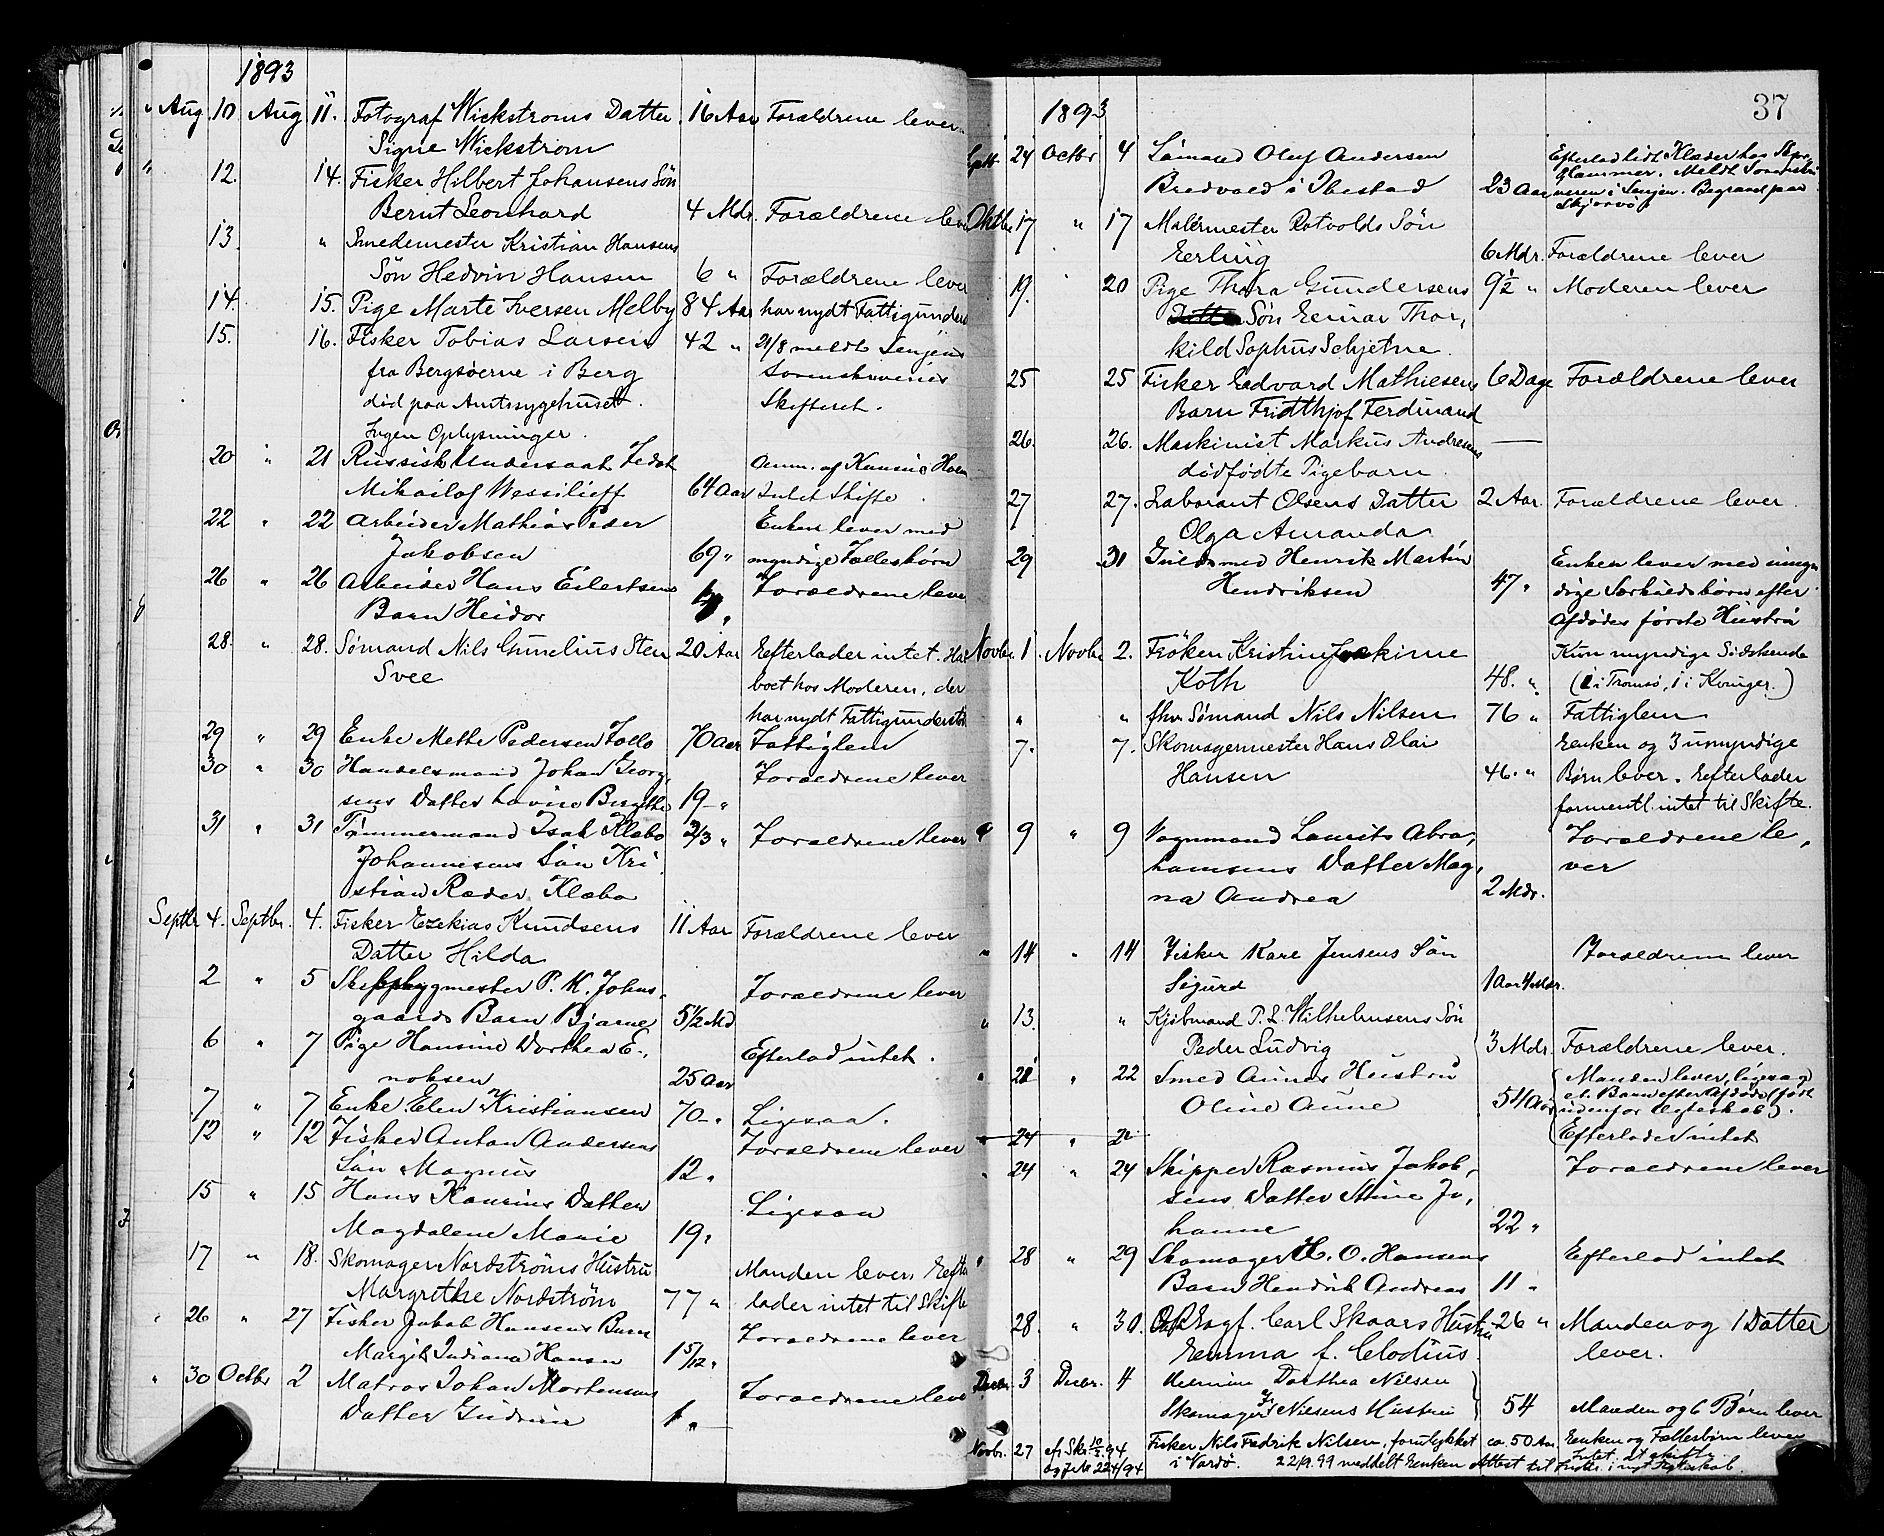 1893
Aug 10 Aug 11. Fotograf Wickstroms Datter 16 Aar Forældrene lever
Signe Wickstrom
" 12. 14. Fisker Hilbert Johansens Søn
Bernt Leonhard 4 Mdr. Forældrene lever
13. " Smedemester Kristian Hansens
Søn Hedvin Hansen 6 " Forældrene lever
14. 15. Pige Marte Iversen Melby 84 Aar har nydt Fattigunders
15. 16. Fisker Tobias Larsen 42 " 21/8 meldt Senjens
fra Bergsøerne i Berg Sorenskriveries
död paa Amtssygehuset. Skifteret.
Ingen Oplysninger.
20 " 21 Russisk Undersaat Fedot
Mikailof Wessilieff 64 Aar Intet Skifte.
22 " 22 Arbeider Mathias Peder Enken lever med
Jakobsen 69 " myndige Fællesbörn
26 " 26 Arbeider Hans Eilertsens Forældrene lever
Barn Heidor
28. " 28. Sømand Nils Cunelius Sten 20 Aar Efterlader intet. Har
Svee boet hos Moderen, der
har nydt Fattigunderst
29 " 29 Enke Mette Pedersen Tollo 70 Aar Fattiglem
30 " 30 Handelsmand Johan Georg- Forældrene lever
sens Datter Lovise Bergithe 19 "
31 " 31 Tømmermand Isak Klæbo 2/3 " Forældrene lever
Johannesens Sön Kri-
stian Ræder Klæbo
Septbr 4. Septbr. 4. Fisker Ezekias Knudsens 11 Aar Forældrene lever
Datter Hilda
2 " 5 Skibsbygmester P. K. Johns- Forældrene lever
gaards Barn Bjarne 5 1/2 Md
6 " 7 Pige Hansine Dorthea E- Efterlod intet.
noksen 25 Aar
7 " 7 Enke Elen Kristiansen 70 " Ligesaa.
12 " 12 Fisker Anton Andersens Forældrene lever
Sön Magnus 12 "
15 " 15 Hans Kaurins Datter Ligesaa
Magdalene Marie 19 "
17 " 18. Skomager Nordströms Hustru Manden lever. Efter
Margrethe Nordström 77 " lader intet til Skifte
" 26 " 27 Fisker Jakob Hansens Barn Forældrene lever
Margit Indiana Hansen 1 5/12 "
" 30 Octbr 2 Matros Johan Mortensens Forældrene lever
Datter Gudrun 1 "
37
1893
Septb. 24 Octbr 4 Sømand Oluf Andersen Efterlod lidt Klæder hos
Bredvold i Ibestad 23 Aar Senjen. Begravet paa
Skjervø
Oktbr 17 " 17 Malermester Rotvolds Søn
Erling 6 Mdr. Forældrene lever
19. 20 Pige Thora Gundersens 9 1/2 " Moderen lever
Datter Søn Einar Thor-
kild Sophus Schjetne.
25 25 Fisker Edvard Mathiesens 6 Dage Forældrene lever
Barn Fridthjof Ferdinand
26. 26. Maskinist Markus Andresens —
dödfödte Pigebarn
27 27. Laborant Olsens Datter 2 Aar. Forældrene lever
Olga Amanda
29 31 Guldsmed Henrik Martin Enken lever med umyn
Hendriksen 47 " dige Særkuldsbörn efter
Afdödes förste Hustru
Novbr. 1. Novbr. 2. Fröken Kristine Joakime Kun myndige Södskende
Koth 48. " (1 i Tromsö, 1 i Kvinger.)
" " fhv. Sømand Nils Nilsen 76 " Fattiglem
7. 7. Skomagermester Hans Olai Enken og 3 umyndige
Hansen 46. " Börn lever. Efterlader
formentl. intet til Skifte.
9 " 9 Vognmand Laurits Abra- Forældrene le-
hamsens Datter Mag- ver
na Andrea 2 Mdr.
" 14 " 14 Fisker Kare Jensens Sön Forældrene lever
Sigurd 1 Aar 4 Mdr.
" 13. " Kjöbmand P. L. Wilhelmsens Sön
Peder Ludvig 3 Mdr. Forældrene lever.
" 21 " 22 Smed Aunes Hustru Manden lever, ligesaa
Oline Aune 54 Aar et Barn efter Afdöde (födt
udenfor Ægteskab).
24 " 2 Efterlader intet
" 24 " 24 Skipper Rasmus Jakob- Forældrene lever
sens Datter Stine Jo-
hanne 22 "
" 28 " 29 Skomager H. O. Hansens Efterlod intet
Barn Hendrik Andreas 11 "
28. " 30. Carl Skaars Hustru 26 " Manden og 1 Datter
Emma f. Clodius. lever.
Decbr. 3 Decbr. 4 Dorthea Nilsen
Skomager Nilsens Hustru 54 Manden og 6 Börn lever
Novbr. 27 Fisker Nils Fedrik Nilsen, forulykket ca. 50 Aar. Enken og Fællesbörn lever
i Vardö. 22/9.99 meddelt Enken Attest til